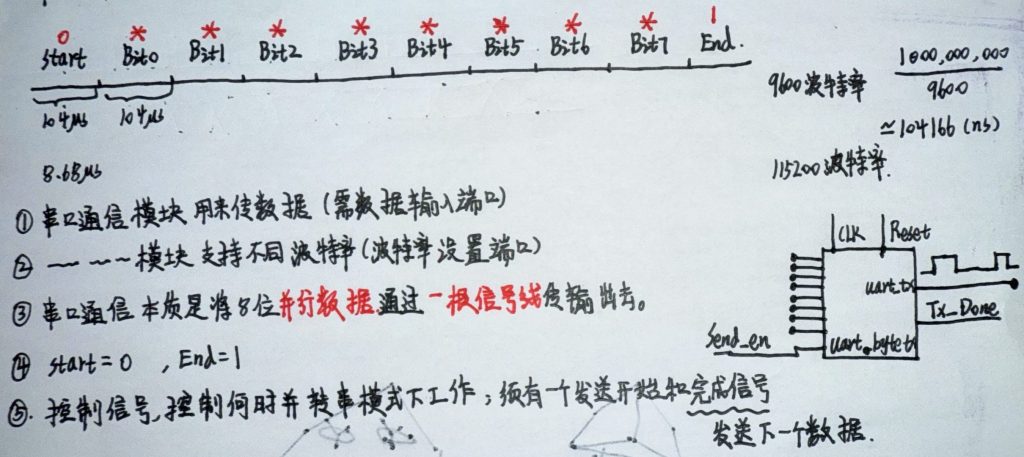 0 * * * * * * * * 1
start Bit0 Bit1 Bit2 Bit3 Bit4 Bit5 Bit6 Bit7 End.
104μs 104μs
8.68μs
9600波特率 1000,000,000
9600
≃104166 (ns)
115200波特率.
① 串口通信模块用来传数据(需数据输入端口)
② 一 一一模块支持不同波特率(波特率设置端口)
③ 串口通信本质是将8位并行数据通过一根信号线传输出去。
④ start=0 , End=1
⑤. 控制信号,控制何时并转串模式下工作;须有一个发送开始和完成信号
发送下一个数据.
CLK Reset
uart_tx
Tx_Done
Send_en
uart_bytetx